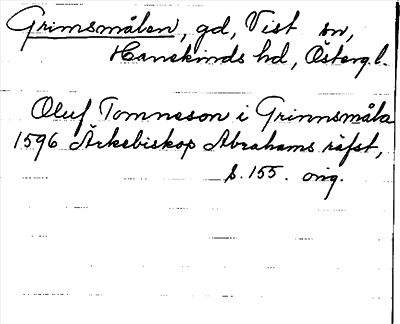 Grimsmålen, gd, Vist sn,
Hanekinds hd, Österg.l.
Oluf Tomneson i Grinnsmåla
1596 Ärkebiskop Abrahams räfst,
s. 155. orig.